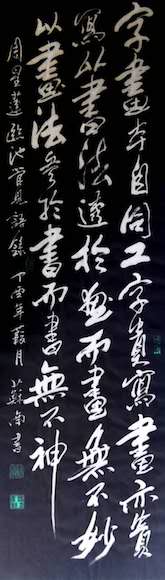 字畫本自同工字貴寫畫亦貴
寫以書法透於畫而畫無不妙
以畫法參於書而書無不神
周星蓮臨池管見語錄 丁酉年月 蘇南書